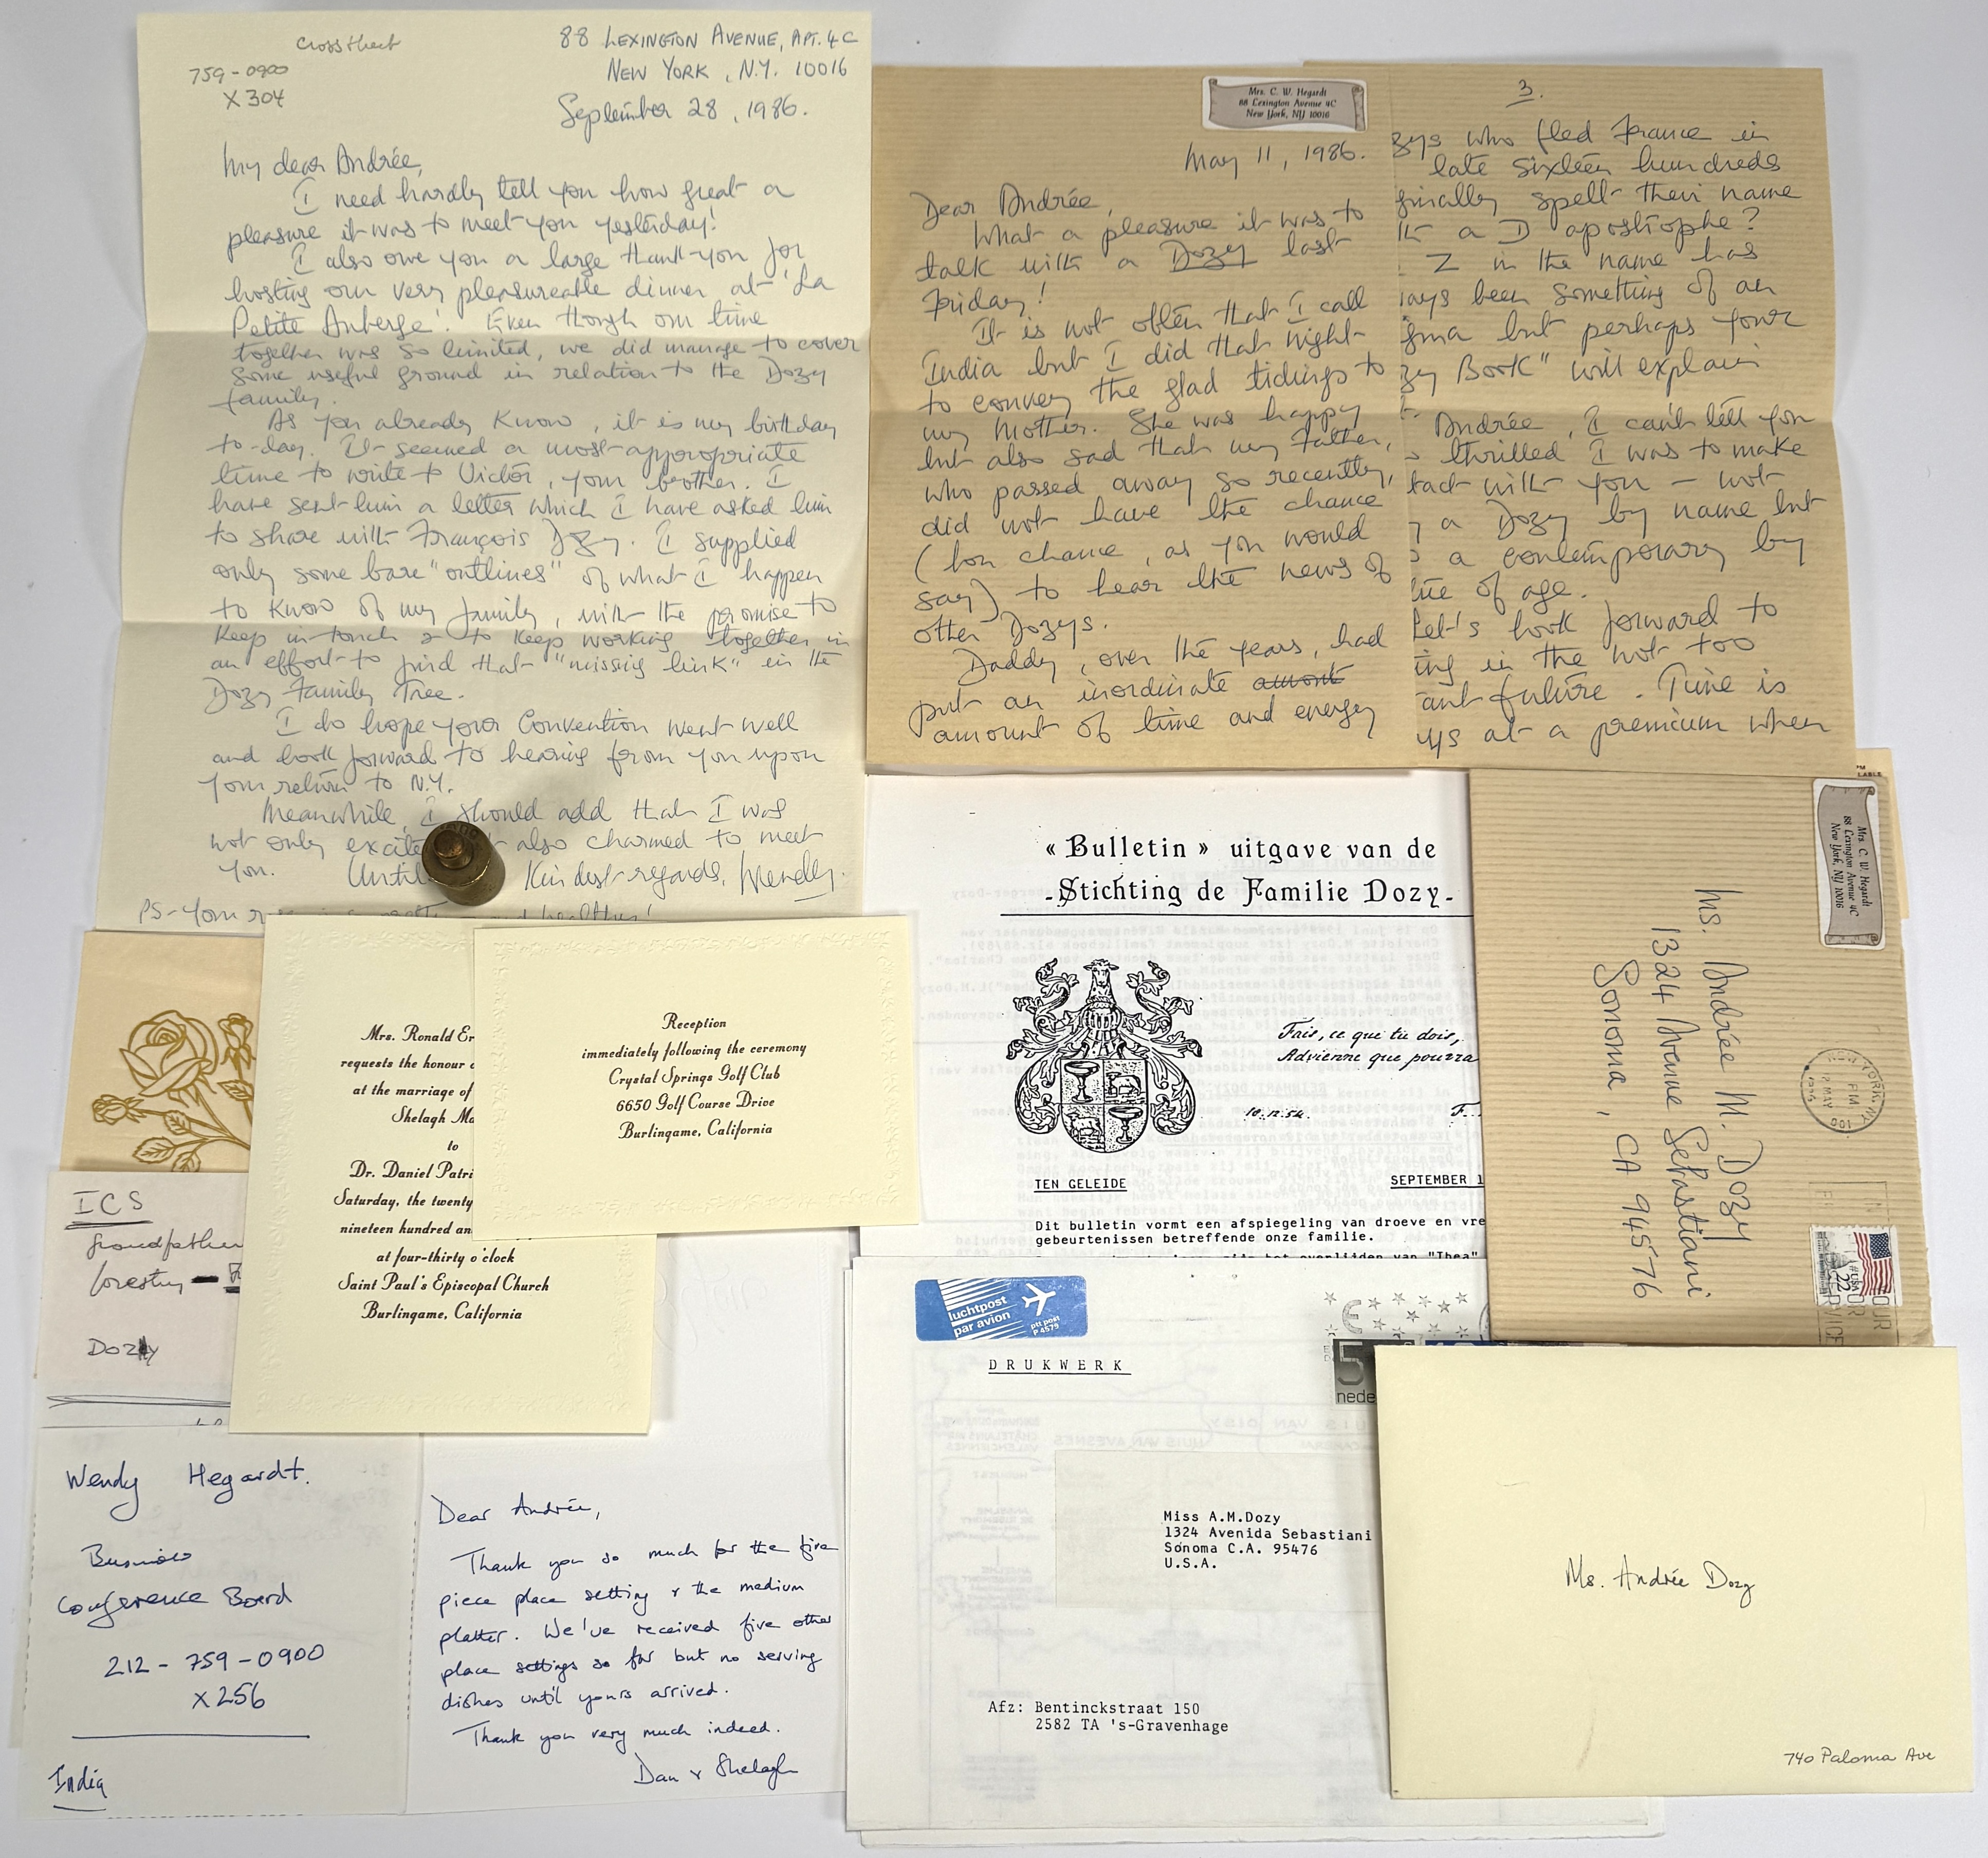 Crosstheet
759-0900
X 304
88 LEXINGTON AVENUE, APT. 4C
NEW YORK, N.Y. 10016
September 28, 1986.
My dear Andrée,
I need hardly tell you how great a
pleasure it was to meet you yesterday!
I also owe you a large thank-you for
hosting our very pleasureable dinner at 'La
Petite Auberge'. Even though our time
together was so limited, we did manage to cover
some useful ground in relation to the Dozy
family.
As you already know, it is my birthday
to-day. It seemed a most appropriate
time to write to Victor, your brother. I
have sent him a letter which I have asked him
to share with François Dozy. I supplied
only some bare "outlines" of what I happen
to know of my family, with the promise to
keep in touch & to keep working together in
an effort to find that "missing link" in the
Dozy Family Tree.
I do hope your Convention went well
and look forward to hearing from you upon
your return to N.Y.
Meanwhile, I should add that I was
not only excite also charmed to meet
you. Until Kindest regards, Wendy.
PS - Your
Mrs. C. W. Hegardt
88 Lexington Avenue 4C
New York, NY 10016
May 11, 1986.
Dear Andrée,
What a pleasure it was to
talk with a Dozy last
Friday!
It is not often that I call
India but I did that night
to convey the glad tidings to
my Mother. She was happy
but also sad that my Father,
who passed away so recently,
did not have the chance
(bon chance, as you would
say) to hear the news of
other Dozys.
Daddy, over the years, had
put an inordinate amont
amount of time and energy
3.
zys who fled France in
late sixteen hundreds
ginally spelt their name
th a D apostrophe?
Z in the name has
ays been something of an
gma but perhaps your
zy Book" will explain
t.
Andrée, I can't tell you
thrilled I was to make
tact with you - not
y a Dozy by name but
a contemporary by
tue of age.
Let's look forward to
ing in the not too
ant future. Time is
ys at a premium when
« Bulletin » uitgave van de
-Stichting de Familie Dozy-
Fais, ce que tu dois,
Advienne que pourra
10.12.54.
F...
TEN GELEIDE
SEPTEMBER 1
Dit bulletin vormt een afspiegeling van droeve en vre
gebeurtenissen betreffende onze familie.
het overlijden van "Thea"
Mrs. C. W. Hegardt
88 Lexington Avenue 4C
New York, NY 10016
Ms. Andrée M. Dozy
1324 Avenue Sebastiani
Sonoma, CA 94576
NEW YORK, NY
PM
12 MAY
1986
001
USA
22
Mrs. Ronald Er
requests the honour o
at the marriage of
Shelagh Ma
to
Dr. Daniel Patri
Saturday, the twenty
nineteen hundred an
at four-thirty o'clock
Saint Paul's Episcopal Church
Burlingame, California
Reception
immediately following the ceremony
Crystal Springs Golf Club
6650 Golf Course Drive
Burlingame, California
ICS
Grandfather
forestry -
DOZY
Wendy Hegardt.
Business
Conference Board
212-759-0900
X256
India
Dear Andrée,
Thank you so much for the five
piece place setting & the medium
platter. We've received five other
place settings so far but no serving
dishes until yours arrived.
Thank you very much indeed.
Dan & Shelagh
luchtpost
par avion
ptt post
P 4579
DRUKWERK
5
nede
Miss A.M.Dozy
1324 Avenida Sebastiani
Sonoma C.A. 95476
U.S.A.
Afz: Bentinckstraat 150
2582 TA 's-Gravenhage
Ms. Andrée Dozy
740 Paloma Ave